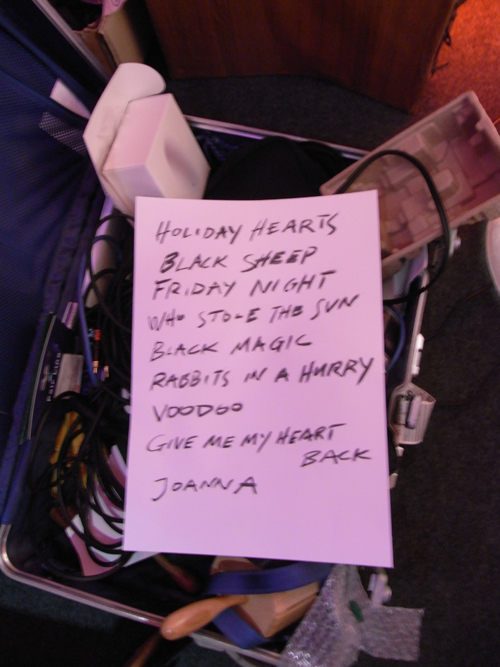 HOLIDAY HEARTS
BLACK SHEEP
FRIDAY NIGHT
WHO STOLE THE SUN
BLACK MAGIC
RABBITS IN A HURRY
VOODOO
GIVE ME MY HEART
BACK
JOANNA